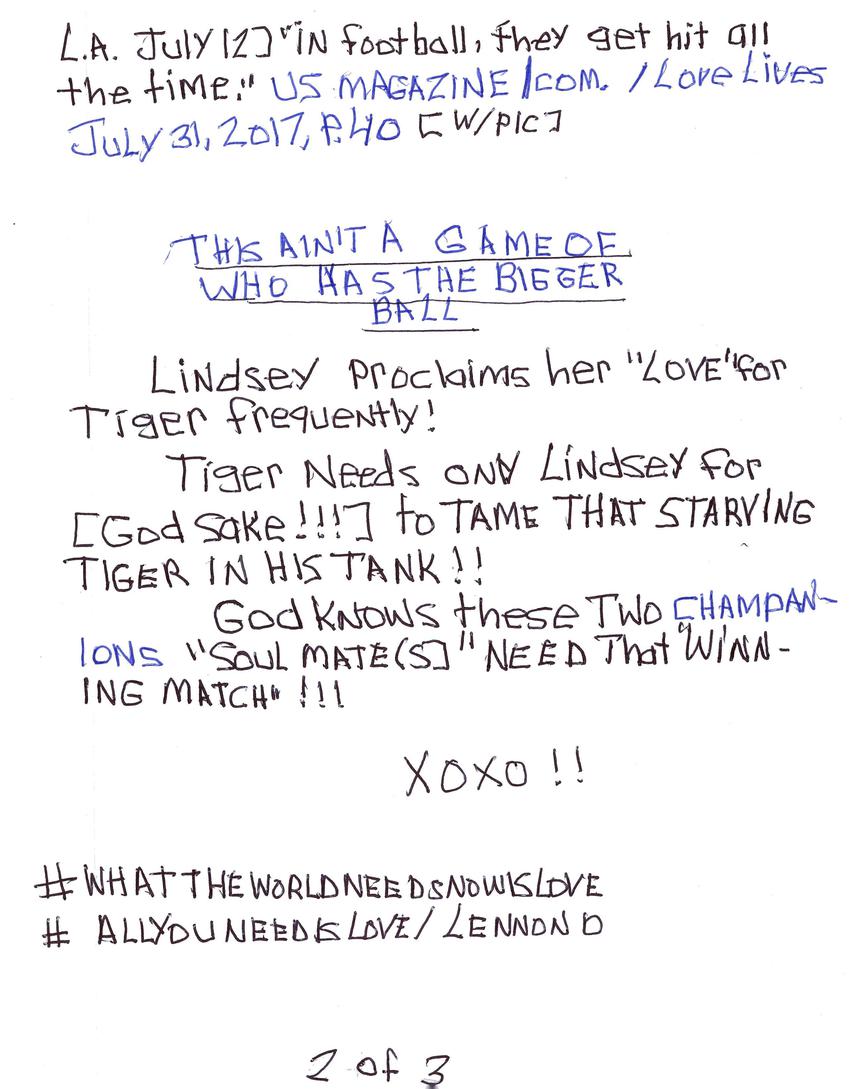 L.A. July [2] "IN football, they get hit all
the time." US MAGAZINE/COM. / Love Lives
July 31, 2017, P.40 [W/PIC]
THIS AIN'T A GAME OF
WHO HAS THE BIGGER
BALL
Lindsey Proclaims her "LOVE" for
Tiger frequently!
Tiger Needs ONY Lindsey for
[God Sake!!!] to TAME THAT STARVING
TIGER IN HIS TANK!!
God KNOWS these Two CHAMPAN-
IONS "SOUL MATE(S]" NEED That "WINN-
ING MATCH" !!!
XOXO !!
#WHATTHEWORLDNEEDSNOWISLOVE
# ALLYOUNEEDISLOVE/ LENNON D
2 of 3